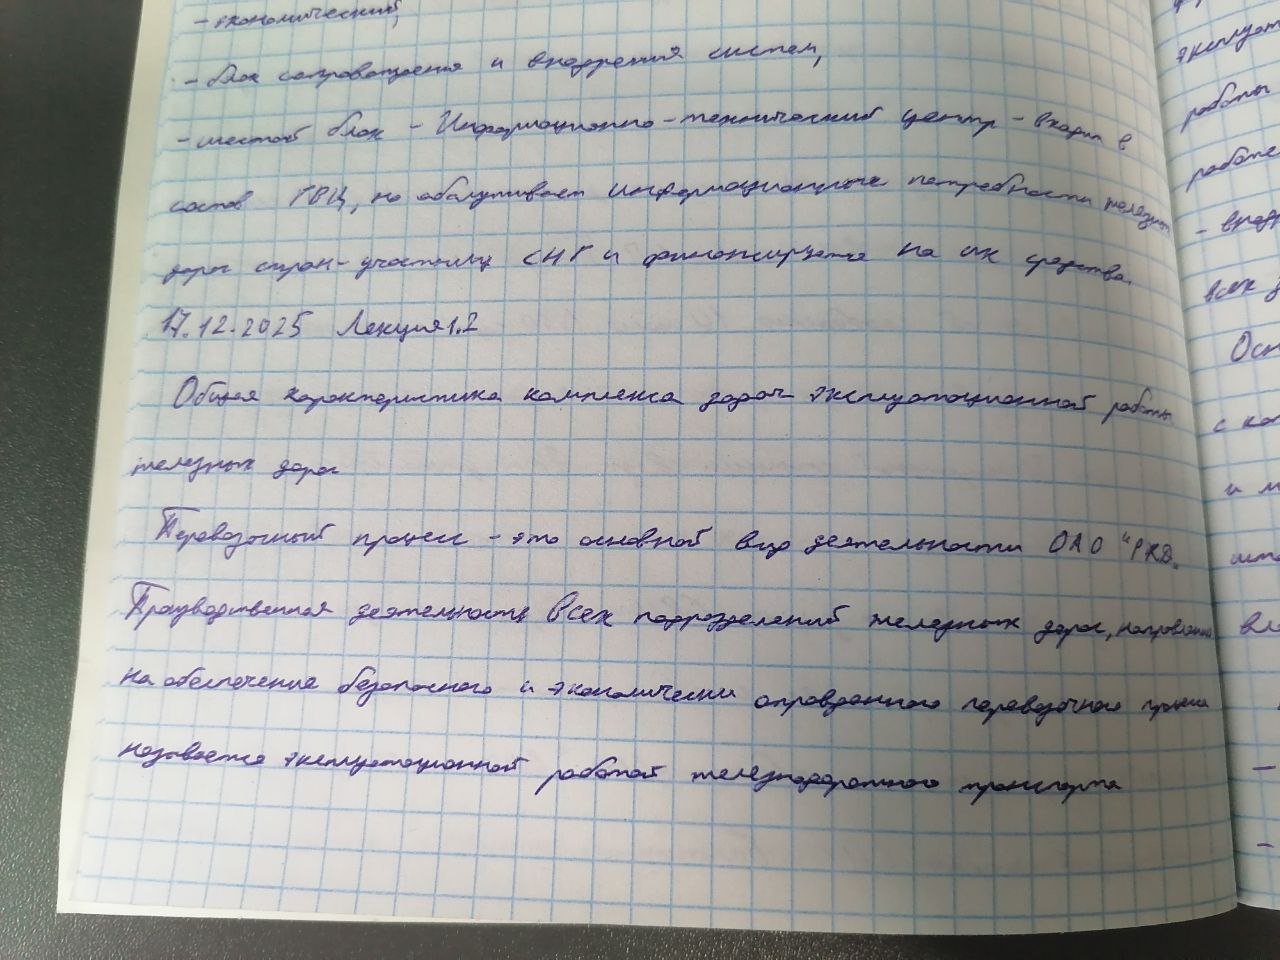 - экономический,
- блок сопровождения и внедрения систем,
- шестой блок - Информационно-технический центр - входит в
состав ГВЦ, но обслуживает информационные потребности железных
дорог стран-участниц СНГ и финансируется на их средства.
17.12.2025 Лекция 1.2
Общая характеристика комплекса задач эксплуатационной работы
железных дорог
Перевозочный процесс - это основной вид деятельности ОАО "РЖД".
Производственная деятельность всех подразделений железных дорог, направленная
на обеспечение безопасного и экономически оправданного перевозочного процесса
называется эксплуатационной работой железнодорожного транспорта
эксплуат
работы
работе
- внедр
всех
Осн
с ко
и м